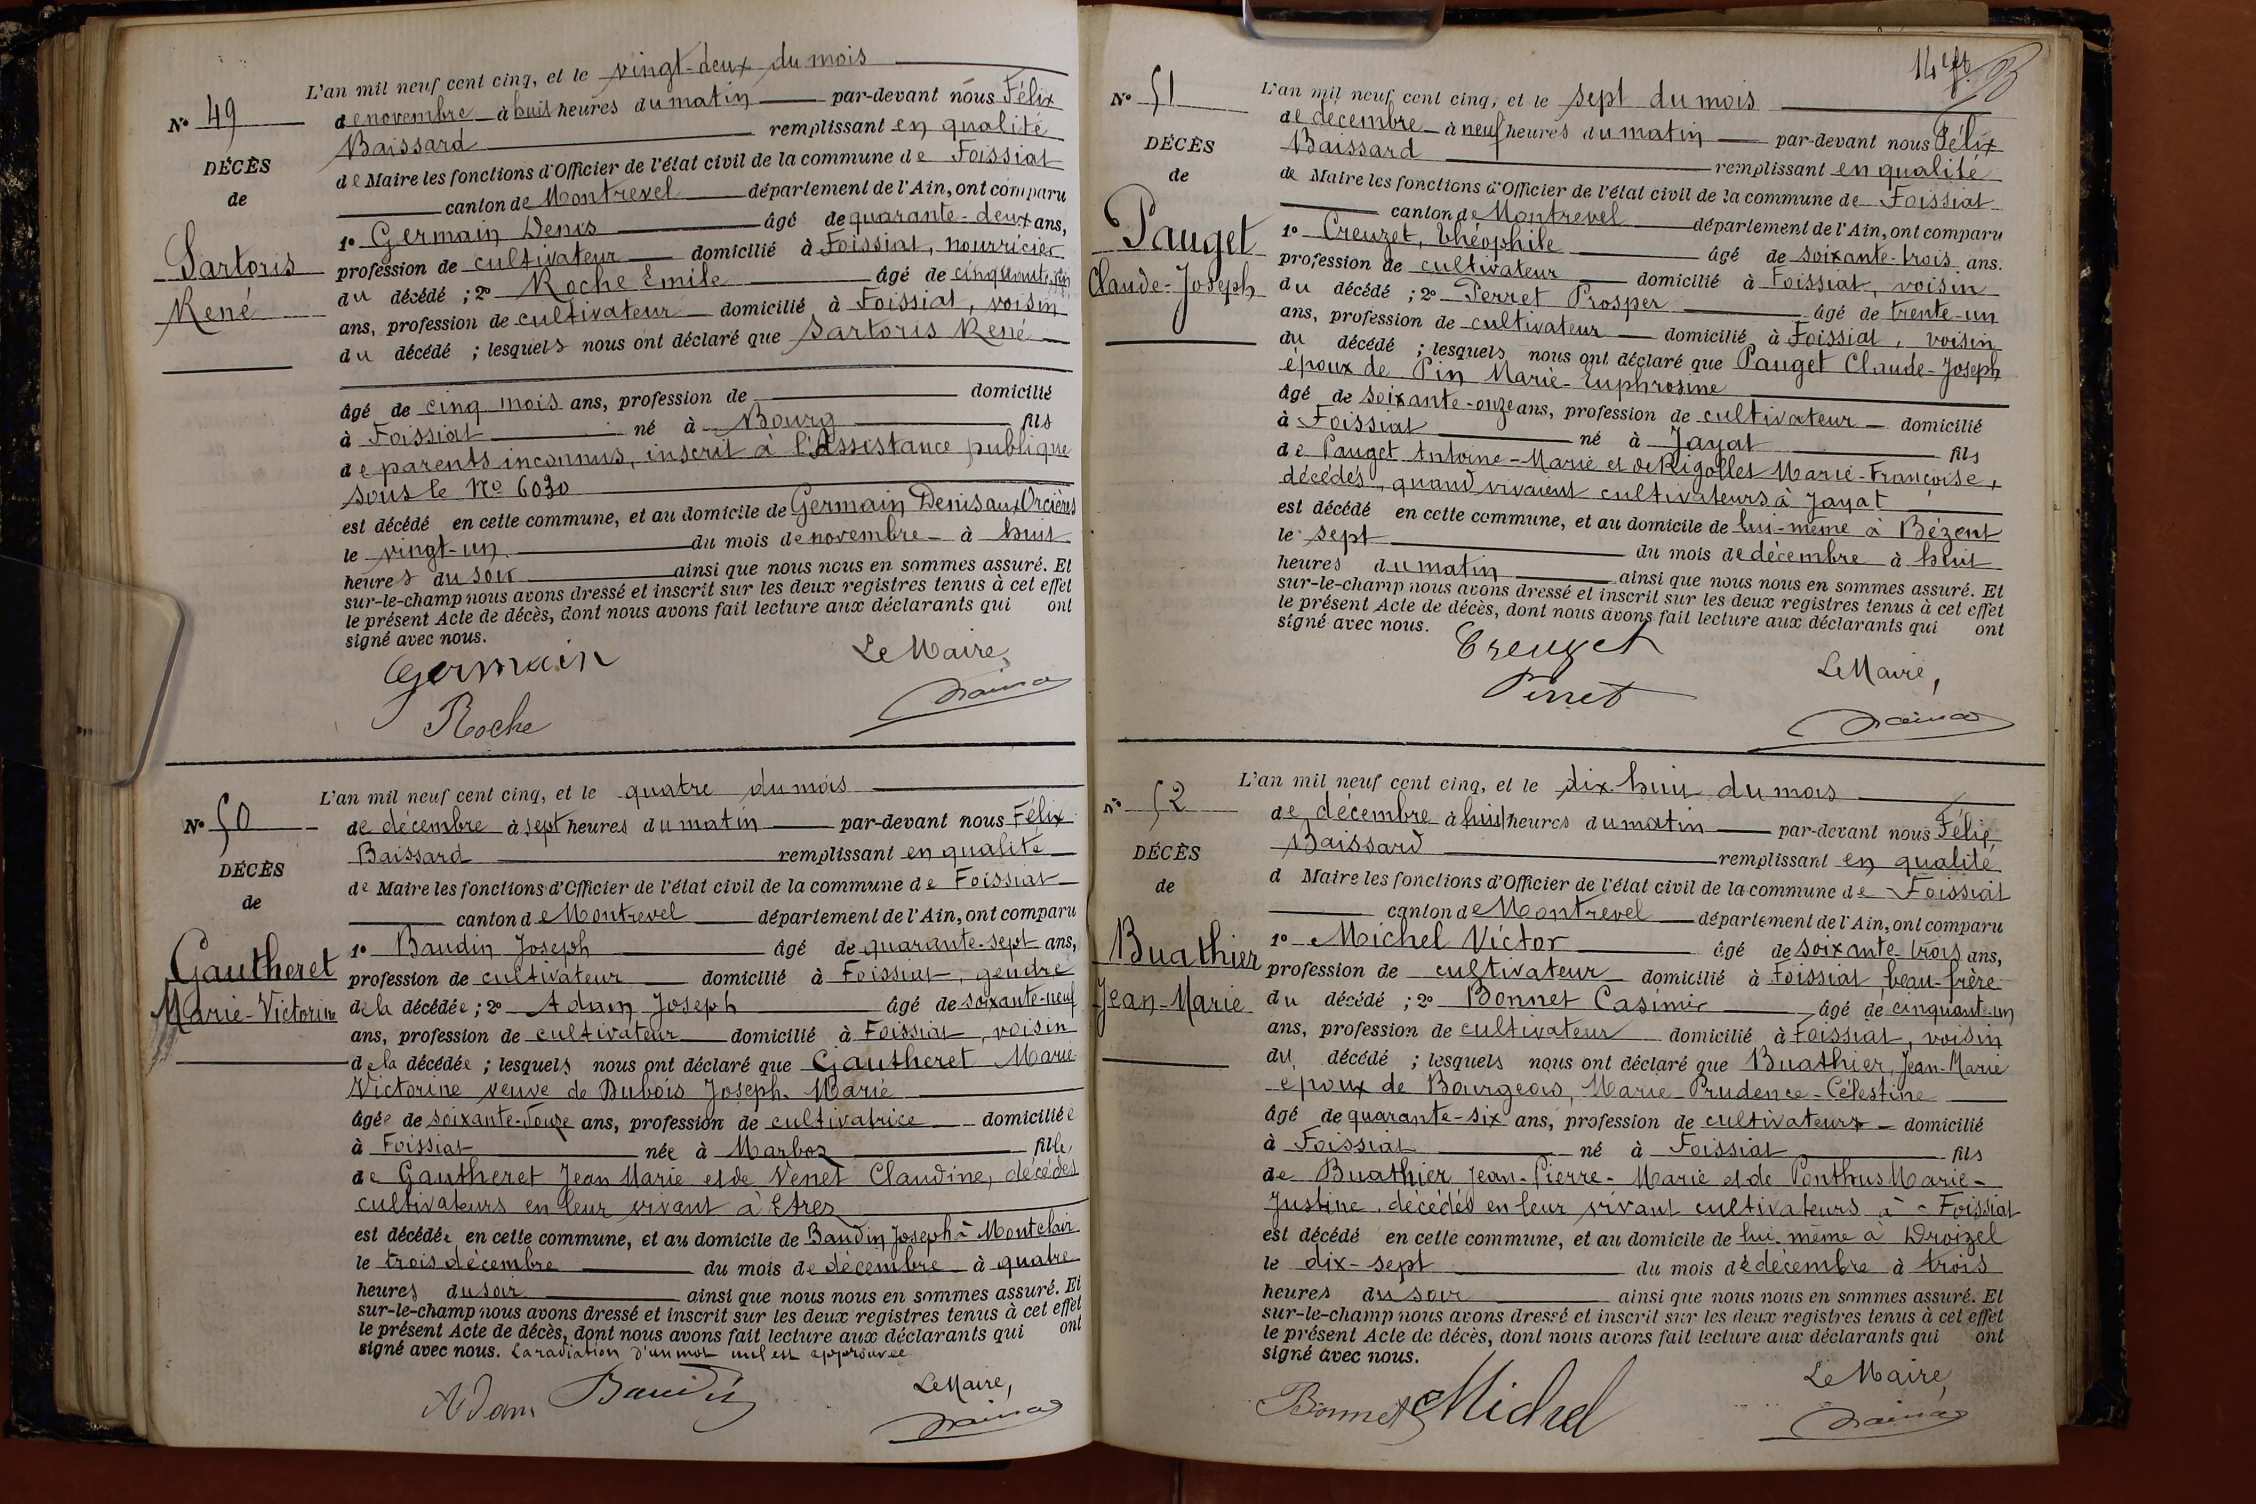 L'an mil neuf cent cinq, et le vingt-deux du mois
N° 49
de novembre à huit heures du matin par-devant nous Félix
Baissard remplissant en qualité
DÉCÈS
de Maire les fonctions d'Officier de l'état civil de la commune de Foissiat
de
canton de Montrevel département de l'Ain, ont comparu
1° Germain Denis âgé de quarante-deux ans,
Sartoris
profession de cultivateur domicilié à Foissiat, nourricier
René
du décédé ; 2° Roche Emile âgé de cinquante
ans, profession de cultivateur domicilié à Foissiat, voisin
du décédé ; lesquels nous ont déclaré que Sartoris René
âgé de cinq mois ans, profession de domicilié
à Foissiat né à Bourg fils
de parents inconnus, inscrit à l'Assistance publique
sous le No 6030
est décédé en cette commune, et au domicile de Germain Denis aux Orcières
le vingt-un du mois de novembre à huit
heures du soir ainsi que nous nous en sommes assuré. Et
sur-le-champ nous avons dressé et inscrit sur les deux registres tenus à cet effet
le présent Acte de décès, dont nous avons fait lecture aux déclarants qui ont
signé avec nous.
Germain
Le Maire,
Roche
L'an mil neuf cent cinq, et le quatre du mois
N° 50
de décembre à sept heures du matin par-devant nous Félix
Baissard remplissant en qualité
DÉCÈS
de Maire les fonctions d'Officier de l'état civil de la commune de Foissiat
de
canton de Montrevel département de l'Ain, ont comparu
1° Baudin Joseph âgé de quarante-sept ans,
Gautheret
profession de cultivateur domicilié à Foissiat, gendre
Marie-Victorine
de la décédée ; 2° Adam Joseph âgé de soixante-neuf
ans, profession de cultivateur domicilié à Foissiat, voisin
de la décédée ; lesquels nous ont déclaré que Gautheret Marie
Victorine veuve de Dubois Joseph-Marie
âgée de soixante-douze ans, profession de cultivatrice domiciliée
à Foissiat née à Marboz fille
de Gautheret Jean Marie et de Venet Claudine, décédés
cultivateurs en leur vivant à Etrez
est décédée en cette commune, et au domicile de Baudin Joseph à Montclair
le trois décembre du mois de décembre à quatre
heures du soir ainsi que nous nous en sommes assuré. Et
sur-le-champ nous avons dressé et inscrit sur les deux registres tenus à cet effet
le présent Acte de décès, dont nous avons fait lecture aux déclarants qui ont
signé avec nous. La radiation d'un mot nul est approuvée
Adam Baudin
Le Maire,
14
N° 51
L'an mil neuf cent cinq, et le sept du mois
de décembre à neuf heures du matin par-devant nous Félix
DÉCÈS
Baissard remplissant en qualité
de
de Maire les fonctions d'Officier de l'état civil de la commune de Foissiat
canton de Montrevel département de l'Ain, ont comparu
Pauget
1° Creuzet, Théophile âgé de soixante-trois ans.
profession de cultivateur domicilié à Foissiat, voisin
Claude-Joseph
du décédé ; 2° Perret Prosper âgé de trente-un
ans, profession de cultivateur domicilié à Foissiat, voisin
du décédé ; lesquels nous ont déclaré que Pauget Claude-Joseph
époux de Pin Marie-Euphrosine
âgé de soixante-onze ans, profession de cultivateur domicilié
à Foissiat né à Jayat fils
de Pauget Antoine-Marie et de Rigollet Marie-Françoise,
décédés, quand vivaient cultivateurs à Jayat
est décédé en cette commune, et au domicile de lui-même à Bézent
le sept du mois de décembre à huit
heures du matin ainsi que nous nous en sommes assuré. Et
sur-le-champ nous avons dressé et inscrit sur les deux registres tenus à cet effet
le présent Acte de décès, dont nous avons fait lecture aux déclarants qui ont
signé avec nous.
Creuzet
Le Maire,
Perret
L'an mil neuf cent cinq, et le dix huit du mois
N° 52
de décembre à huit heures du matin par-devant nous Félix
Baissard remplissant en qualité
DÉCÈS
d Maire les fonctions d'Officier de l'état civil de la commune de Foissiat
de
canton de Montrevel département de l'Ain, ont comparu
1° Michel Victor âgé de soixante-trois ans,
Buathier
profession de cultivateur domicilié à Foissiat, beau-frère
Jean-Marie
du décédé ; 2° Bonnet Casimir âgé de cinquante-un
ans, profession de cultivateur domicilié à Foissiat, voisin
du décédé ; lesquels nous ont déclaré que Buathier, Jean-Marie
époux de Bourgeois, Marie-Prudence-Célestine
âgé de quarante-six ans, profession de cultivateur domicilié
à Foissiat né à Foissiat fils
de Buathier Jean-Pierre-Marie et de Ponthus Marie-
Justine, décédés en leur vivant cultivateurs à Foissiat
est décédé en cette commune, et au domicile de lui-même à Droizel
le dix-sept du mois de décembre à trois
heures du soir ainsi que nous nous en sommes assuré. Et
sur-le-champ nous avons dressé et inscrit sur les deux registres tenus à cet effet
le présent Acte de décès, dont nous avons fait lecture aux déclarants qui ont
signé avec nous.
Le Maire,
Bonnet Michel